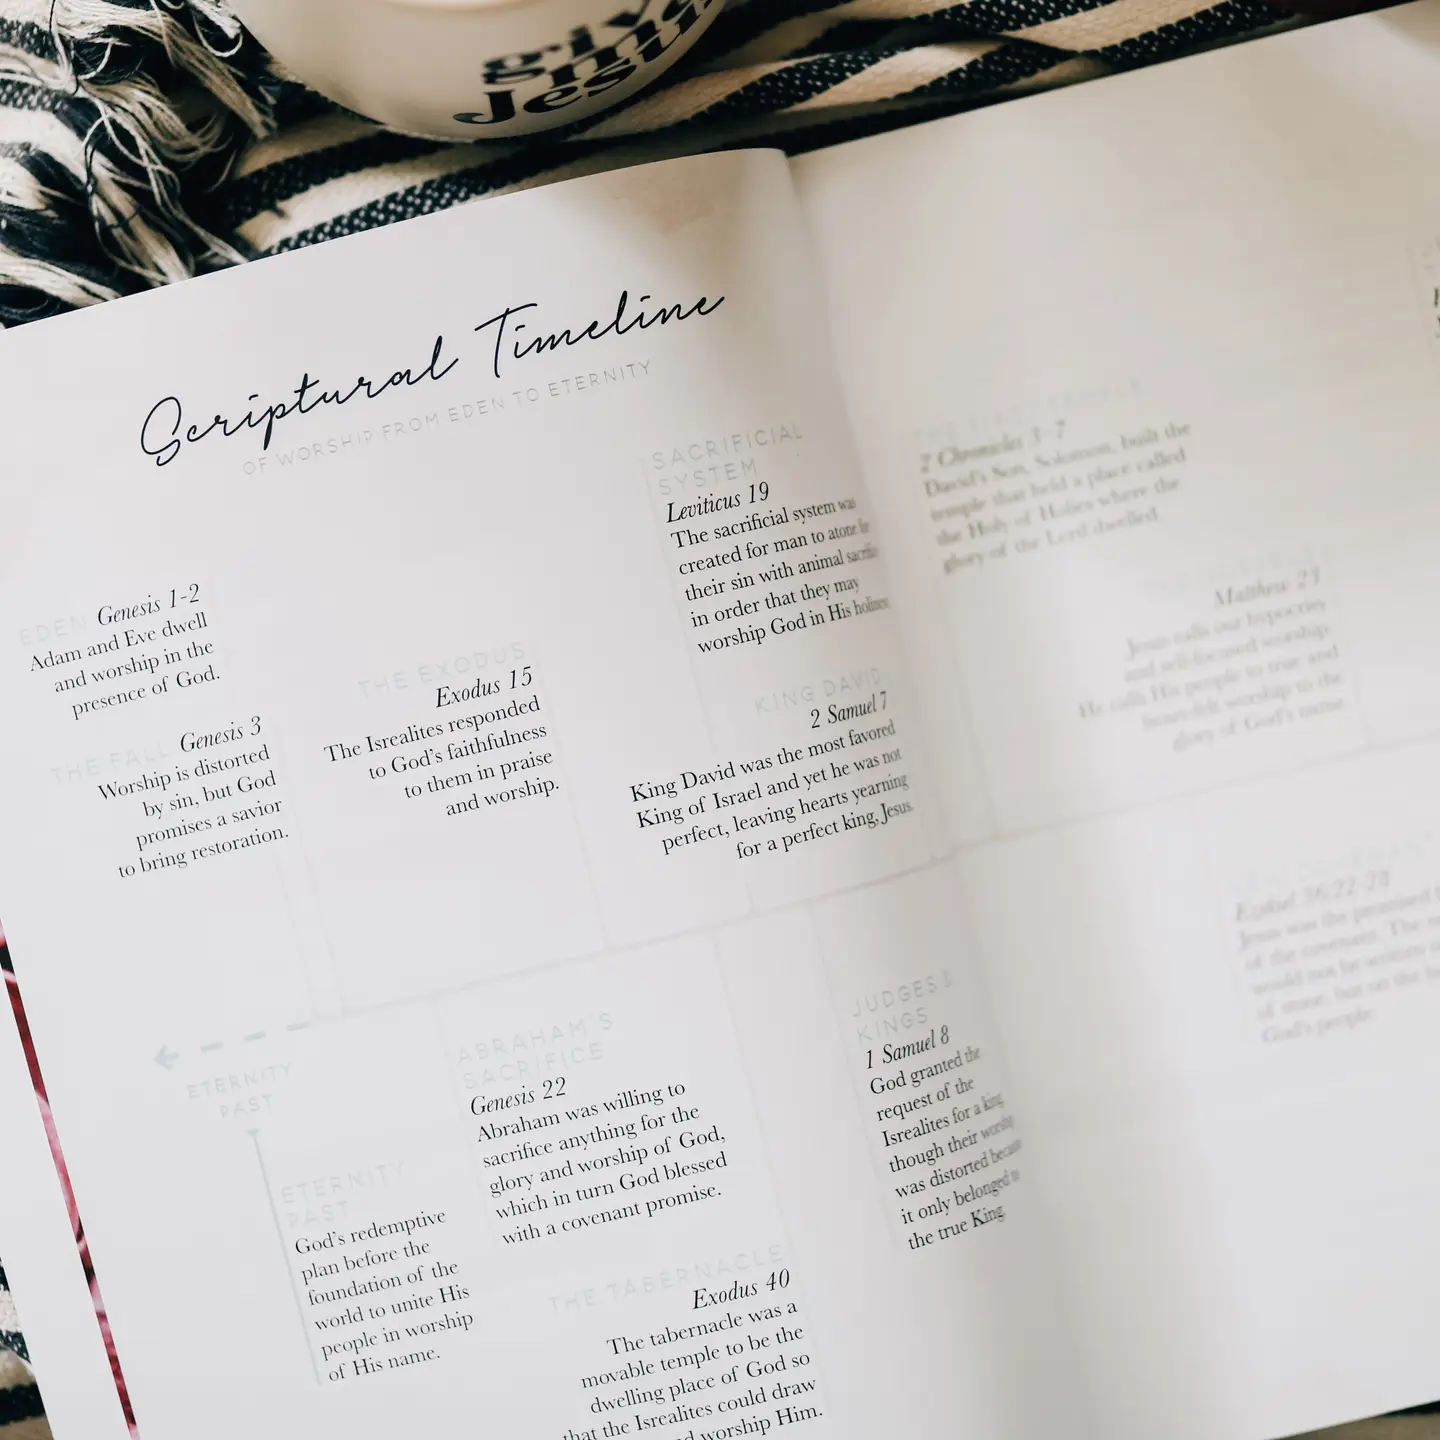 give
me
Jesus
Scriptural Timeline
OF WORSHIP FROM EDEN TO ETERNITY
EDEN Genesis 1-2
Adam and Eve dwell
and worship in the
presence of God.
THE FALL Genesis 3
Worship is distorted
by sin, but God
promises a savior
to bring restoration.
THE EXODUS
Exodus 15
The Isrealites responded
to God's faithfulness
to them in praise
and worship.
SACRIFICIAL
SYSTEM
Leviticus 19
The sacrificial system was
created for man to atone for
their sin with animal
in order that they may
worship God in His holiness
KING DAVID
2 Samuel 7
King David was the most favored
King of Israel and yet he was not
perfect, leaving hearts yearning
for a perfect king, Jesus.
ETERNITY
PAST
ETERNITY
PAST
God's redemptive
plan before the
foundation of the
world to unite His
people in worship
of His name.
ABRAHAM'S
SACRIFICE
Genesis 22
Abraham was willing to
sacrifice anything for the
glory and worship of God,
which in turn God blessed
with a covenant promise.
THE TABERNACLE
Exodus 40
The tabernacle was a
movable temple to be the
dwelling place of God so
that the Isrealites could draw
worship Him.
JUDGES &
KINGS
1 Samuel 8
God granted the
request of the
Isrealites for a king
though their worship
was distorted because
it only belonged to
the true King.
2 Chronicles 3-7
David's Son, Solomon, built the
temple that held a place called
the Holy of Holies where the
glory of the Lord dwelled.
Matthew 23
Jesus calls out hypocrisy
and self-focused worship.
He calls His people to true and
heartfelt worship to the
glory of God's name.
Ezekiel 36:22-28
Jesus was the promised
of the covenant. The
would not be written
of stone, but on the
God's people.